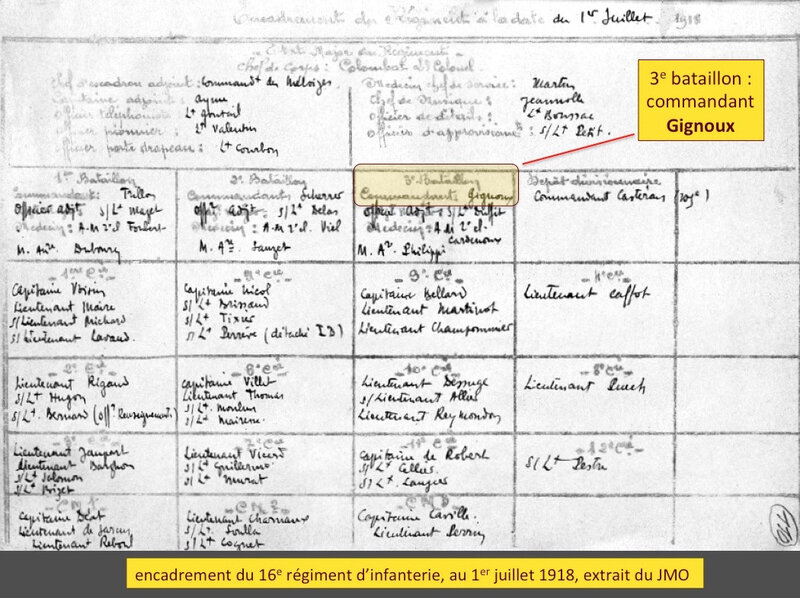 Encadrement du Régiment à la date du 1er Juillet 1918
Etat Major du Régiment
Chef de Corps: Colombat Lt Colonel
Chef d'escadron adjoint: Commandt des Méloizes
Capitaine adjoint: Ayme
Officier téléphoniste
Officier pionnier: Lt Valentin
Officier porte drapeau: Lt Courbon
Médecin chef de service: Martin
Chef de Musique: Jeannolle
Officier de détails: Lt Boussac
Officier d'approvisionnt: S/Lt Petit.
3e bataillon :
commandant
Gignoux
1er Bataillon
Commandant: Tullon
Officier adjt: S/Lt Majet
Médecin: A.M 2e cl.
M. Aux. Dubourg
2e Bataillon
Commandant: Scherrer
Offr adjt: S/Lt Delas
Médecin: A.M 2e cl. Viel
M. Auxre. Sauzet
3e Bataillon
Commandant: Gignoux
Officr Adjt: S/Lt
Médecin: A.M 2e cl.
Cardenoux
M. Aux. Philippi
Dépôt divisionnaire
Commandant Casteras
1ère Cie
Capitaine Voirin
Lieutenant Maire
S/Lieutenant Richard
S/Lieutenant Lavaud.
Capitaine Nicol
S/Lt Brissaud
S/Lt Tixier
S/Lt Perrère (détaché I.D)
9e Cie
Capitaine Bellard
Lieutenant Martinot
Lieutenant Champommier
4e Cie
Lieutenant Caffot
2e Cie
Lieutenant Rigaud
S/Lt Hugon
S/Lt. Bernard (Offr Renseignement)
Capitaine Villet
Lieutenant Thomas
S/Lt. Moulin
S/Lt Mairesse
10e Cie
Lieutenant Dessuge
S/Lieutenant Allus
Lieutenant Reymondon
8e Cie
Lieutenant Puech
3e Cie
Lieutenant Jaupart
Lieutenant Barghon
S/Lt Salomon
S/Lt Brizet
7e Cie
Lieutenant Vicard
S/Lt Guillermo
S/Lt Neurat
11e Cie
Capitaine de Robert
S/Lt Cellier
S/Lt Langues
12e Cie
S/Lt Pestre
C M 1
Capitaine Béat
Lieutenant de
Lieutenant Reboul
C M 2
Lieutenant Charnaux
S/Lt Soulla
S/Lt Cognet
C M 3
Capitaine Caville
Lieutenant Perrin
encadrement du 16e régiment d'infanterie, au 1er juillet 1918, extrait du JMO